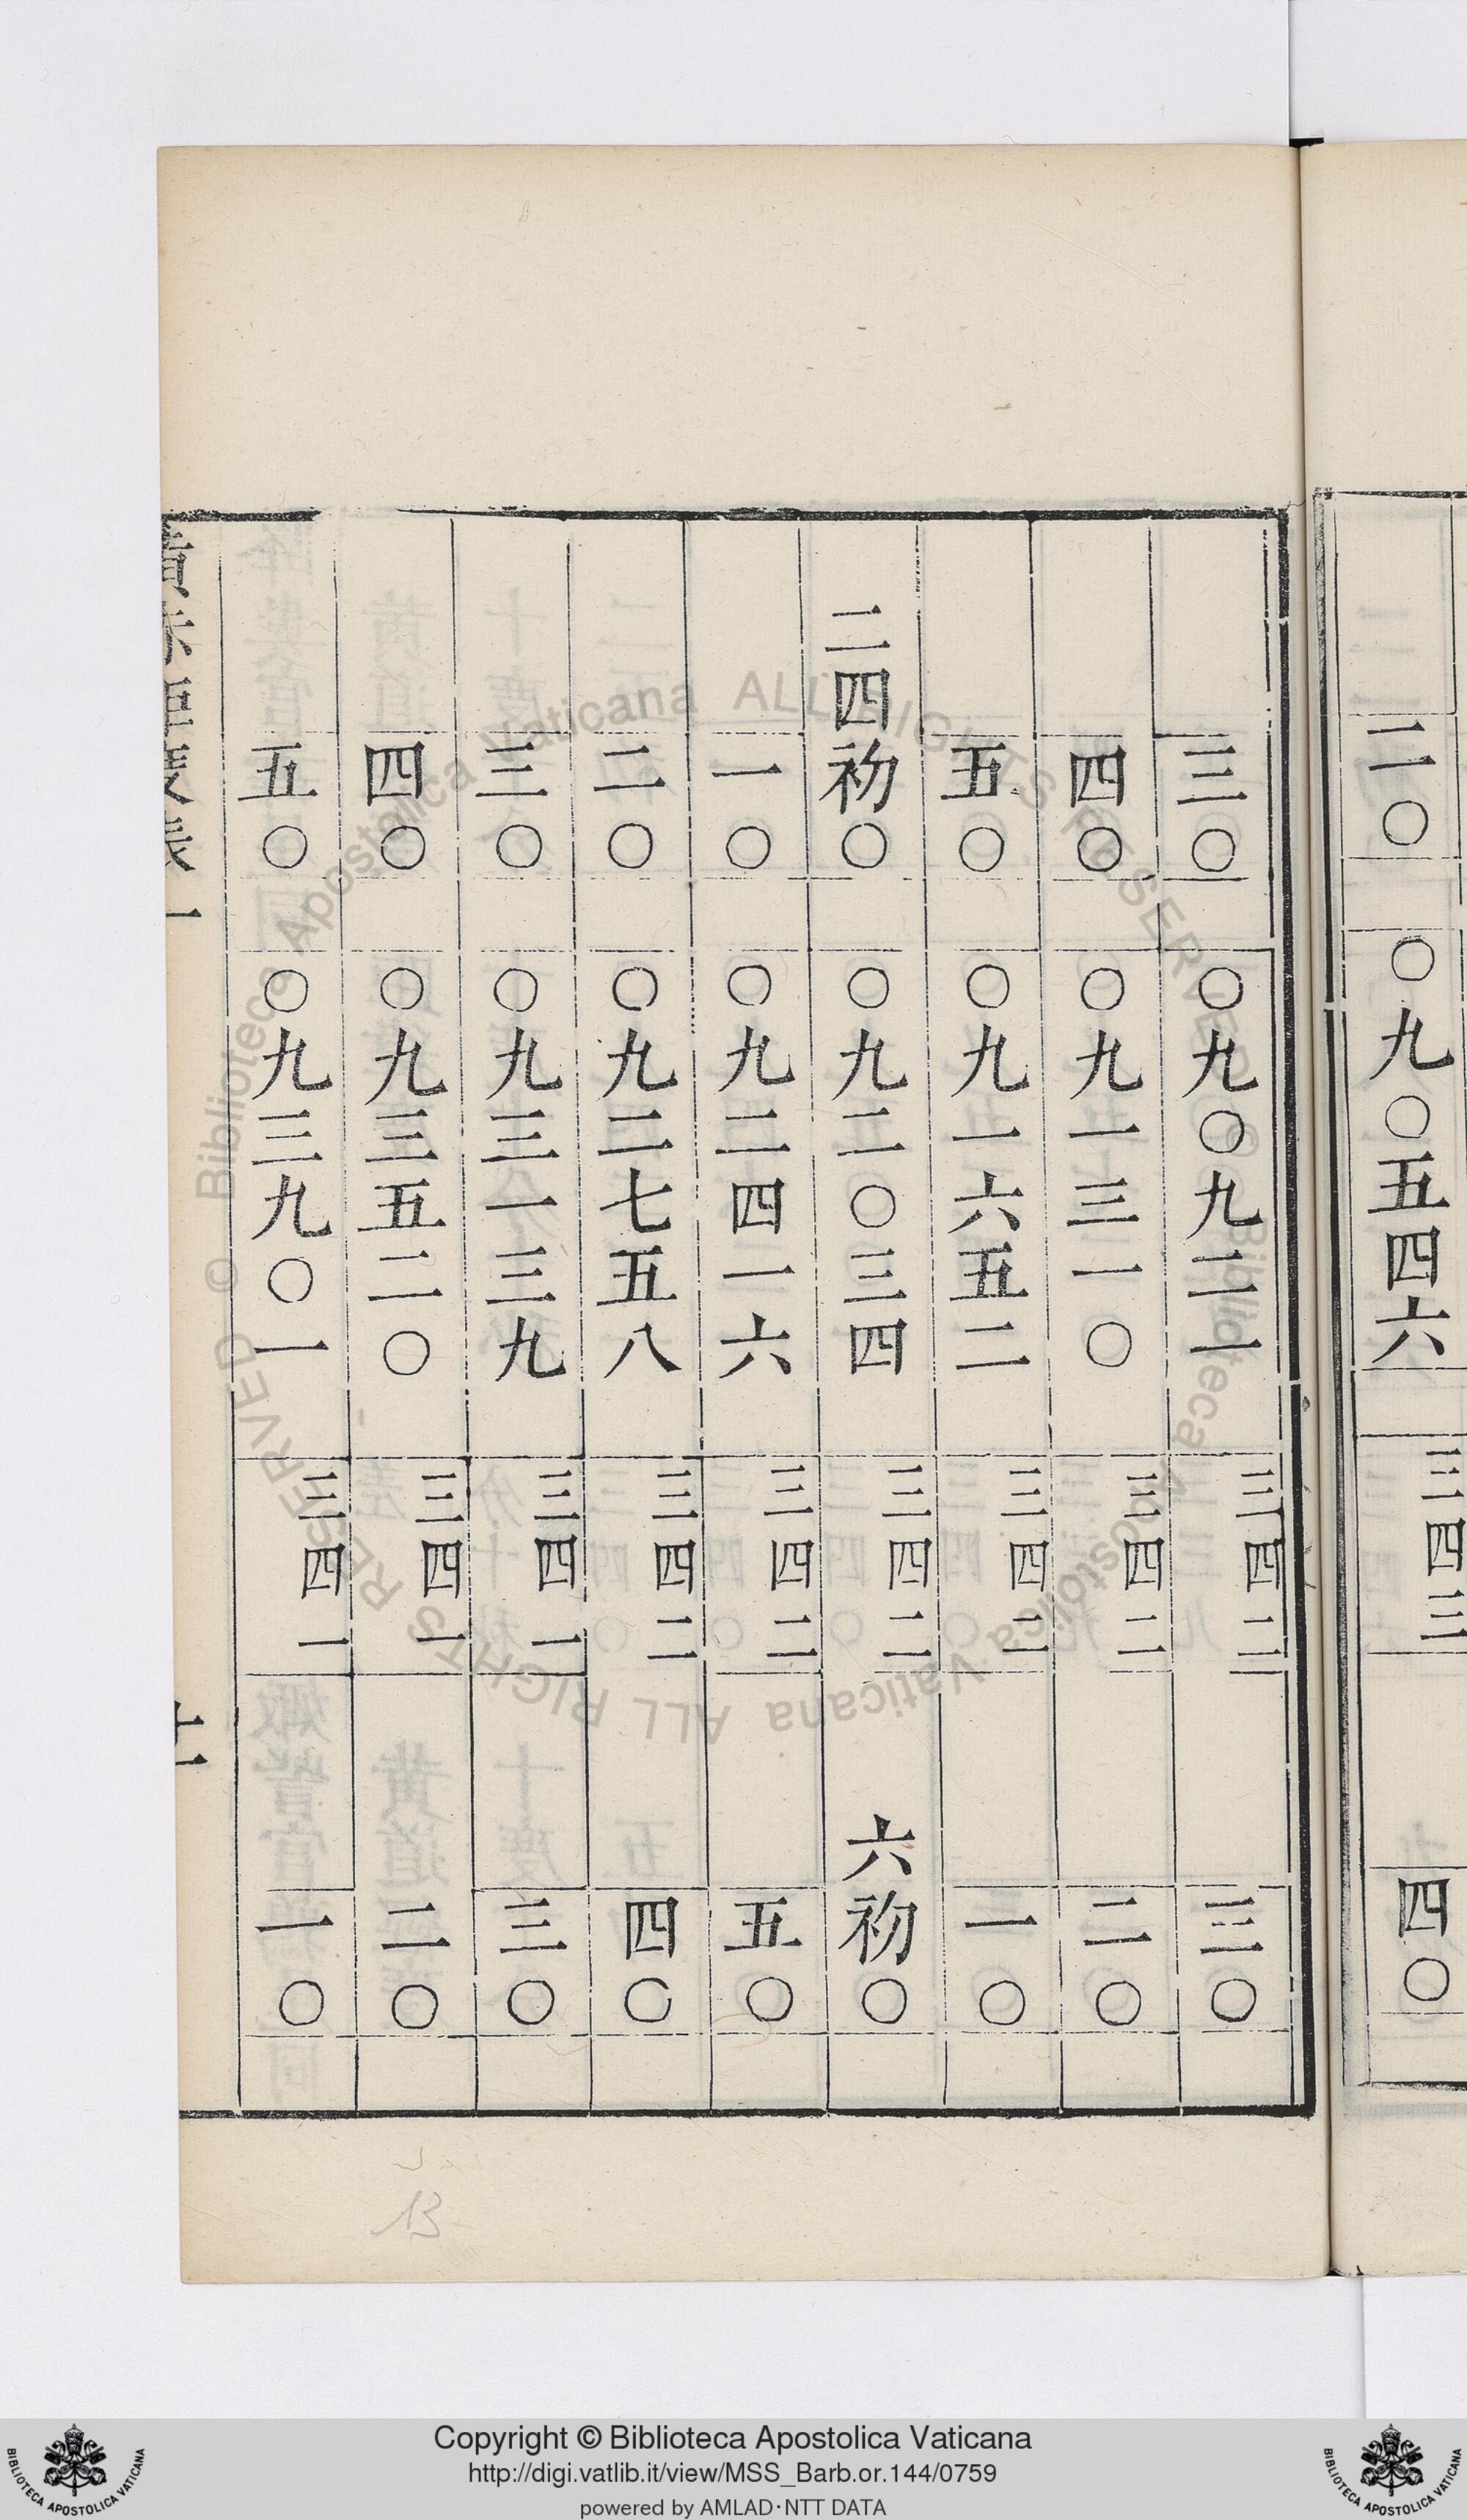 二〇　〇九〇五四六　三四三　四〇
三〇　〇九〇九二一　三四二　三〇
四〇　〇九一三一〇　三四二　二〇
五〇　〇九一六五二　三四二　一〇
二四初〇　〇九二〇三四　三四二　六初〇
一〇　〇九二四一六　三四二　五〇
二〇　〇九二七五八　三四二　四〇
三〇　〇九三一三九　三四一　三〇
四〇　〇九三五二〇　三四一　二〇
五〇　〇九三九〇一　三四一　一〇
13
Copyright © Biblioteca Apostolica Vaticana
http://digi.vatlib.it/view/MSS_Barb.or.144/0759
powered by AMLAD·NTT DATA